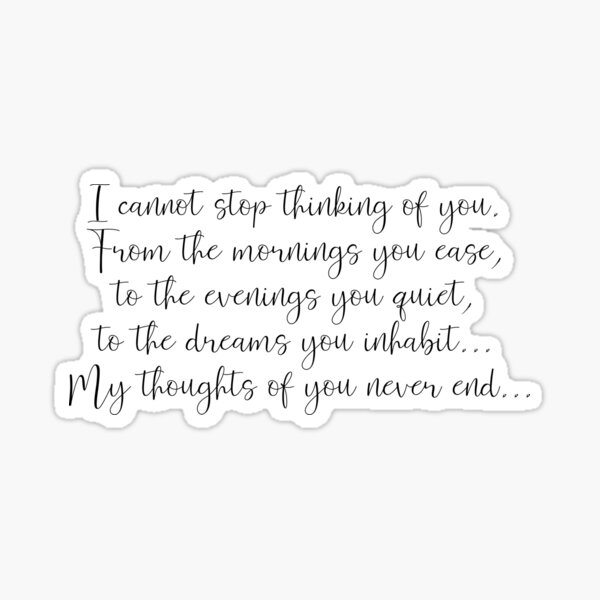 I cannot stop thinking of you.
From the mornings you ease,
to the evenings you quiet,
to the dreams you inhabit...
My thoughts of you never end...